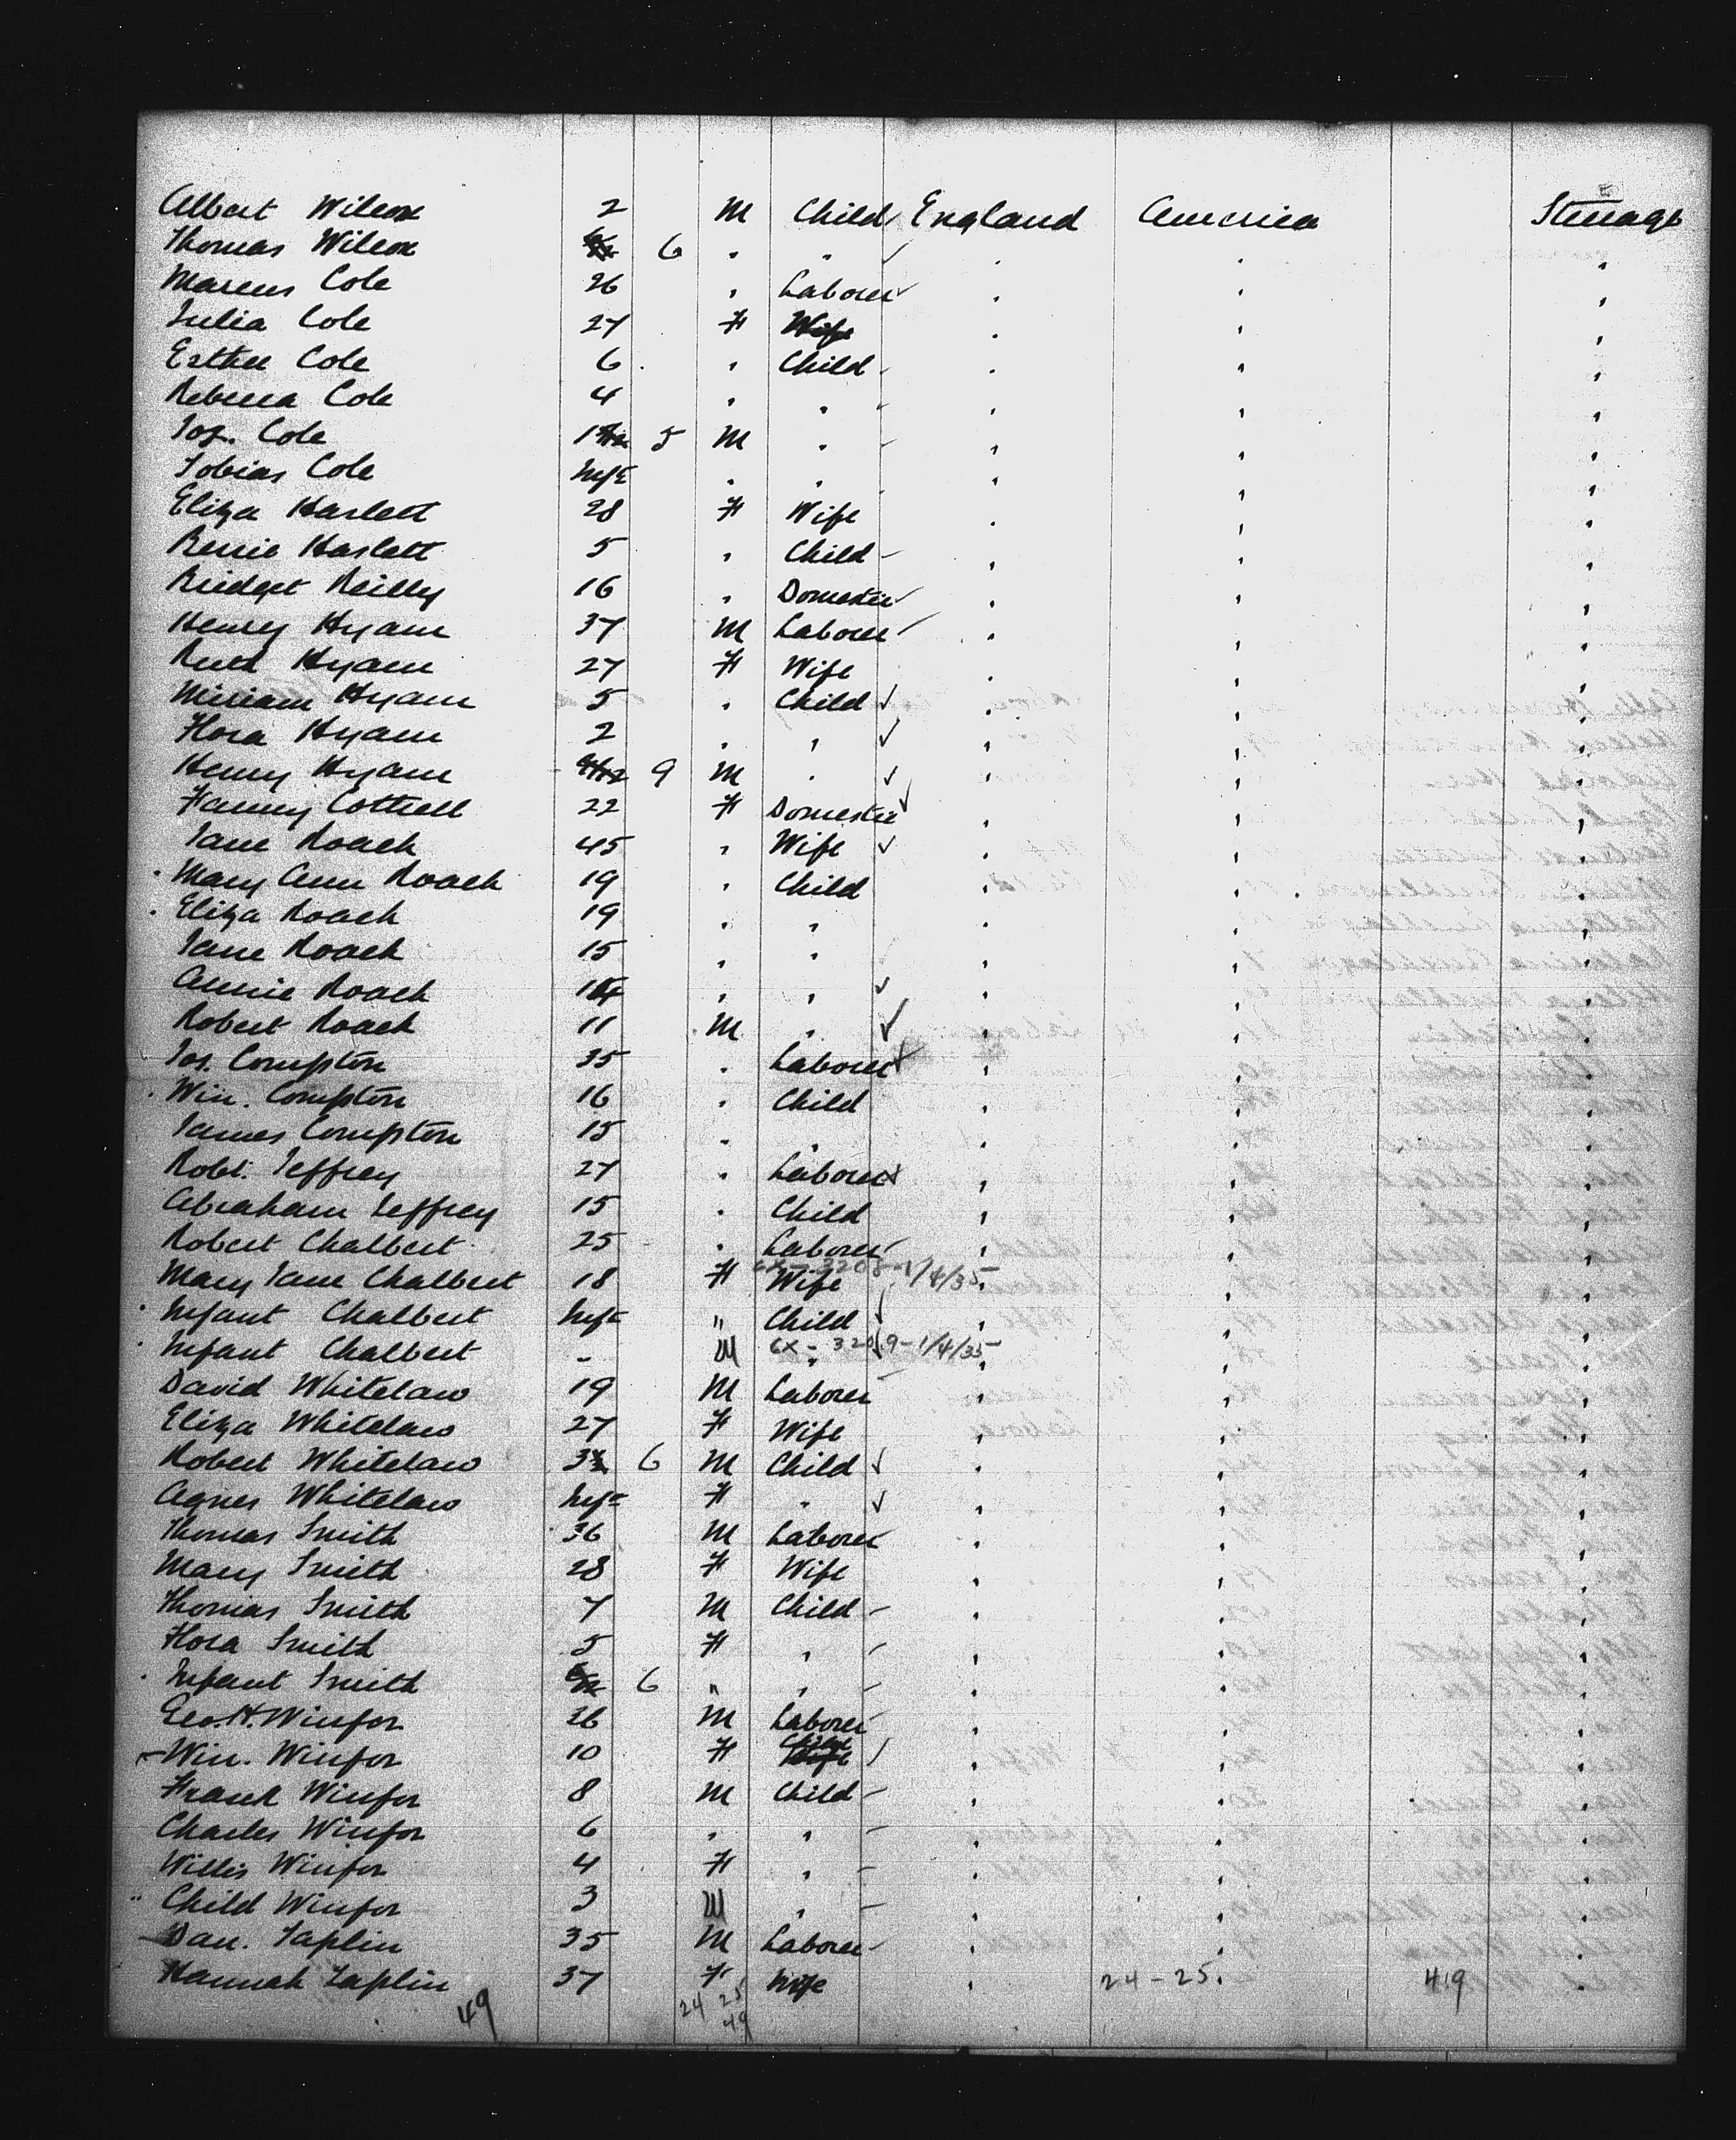 Albert Wilcox 2 M Child England America Steerage
Thomas Wilcox 6 " "
Marcus Cole 26 " Laborer
Julia Cole 27 F Wife
Esther Cole 6 " Child
Rebecca Cole 4 " "
Jos. Cole 1 5 M "
Tobias Cole Inft " "
Eliza Haslett 28 F Wife
Bessie Haslett 5 " Child
Bridget Reilly 16 " Domestic
Henry Hyam 37 M Laborer
Ruth Hyam 27 F Wife
Miriam Hyam 5 " Child
Flora Hyam 2 " "
Henry Hyam 9/12 9 M "
Fanny Cottrell 22 F Domestic
Jane Roach 45 " Wife
Mary Ann Roach 19 " Child
Eliza Roach 19 " "
Jane Roach 15 " "
Annie Roach 14 " "
Robert Roach 11 M "
Jos. Compton 35 " Laborer
Wm. Compton 16 " Child
James Compton 15 " "
Robt. Jeffrey 27 " Laborer
Abraham Jeffrey 15 " Child
Robert Chalbert 25 " Laborer
6X - 3208 - 1/4/35
Mary Jane Chalbert 18 F Wife
Infant Chalbert Inft " Child
Infant Chalbert - M " 6X - 3209 - 1/4/35
David Whitelaw 19 M Laborer
Eliza Whitelaw 27 F Wife
Robert Whitelaw 3 6 M Child
Agnes Whitelaw Inft F "
Thomas Smith 36 M Laborer
Mary Smith 28 F Wife
Thomas Smith 7 M Child
Flora Smith 5 F "
Infant Smith 6/12 6 " "
Geo. H. Winfor 26 M Laborer
Wm. Winfor 10 F Child
Frank Winfor 8 M Child
Charles Winfor 6 " "
Willis Winfor 4 F "
Child Winfor 3 M "
Dan. Taplin 35 M Laborer
Hannah Taplin 37 F Wife 24-25 49
49 24 25
49